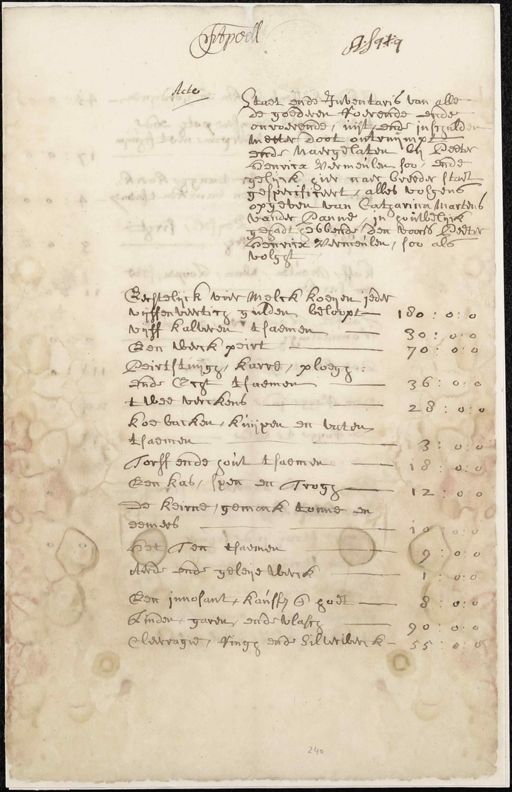 Acte
Staet ende Inventaris van alle
de goederen Roerende ende
onroerende, uijt ende inschulden
metter doot ontruijmpt
ende naergelaten bij Peeter
Henricx Vermeulen soo, ende
gelijck hier naer breeder staet
gespecificeert, alles volgens
opgeven van Catharina Martens
vander Panne, in houwelijck
gehadt hebbende den voors Peeter
Henricx Vermeulen, soo als
volght
Eerstelijck vier Melck koeijen ieder
vijffenveertich gulden beloopt 180 : 0 : 0
vijff kalveren tsaemen 30 : 0 : 0
Een werck peirt 70 : 0 : 0
Peirtstuijgh, karre, ploegh
ende Eegt tsaemen 36 : 0 : 0
twee verckens 28 : 0 : 0
koebacken, kuijpen en vaten
tsaemen 3 : 0 : 0
Torff ende hout tsaemen 18 : 0 : 0
Een kas, spen en Trogh 12 : 0 : 0
De keirne, tonne en
eemers 10 : 0 : 0
Het Ten tsaemen 9 : 0 : 0
Aerde ende geleije werck 1 : 0 : 0
Een 8 : 0 : 0
Linden, garen, ende vlasch 90 : 0 : 0
Cleeragie, Ringh ende Silverwerck 55 : 0 : 0
240